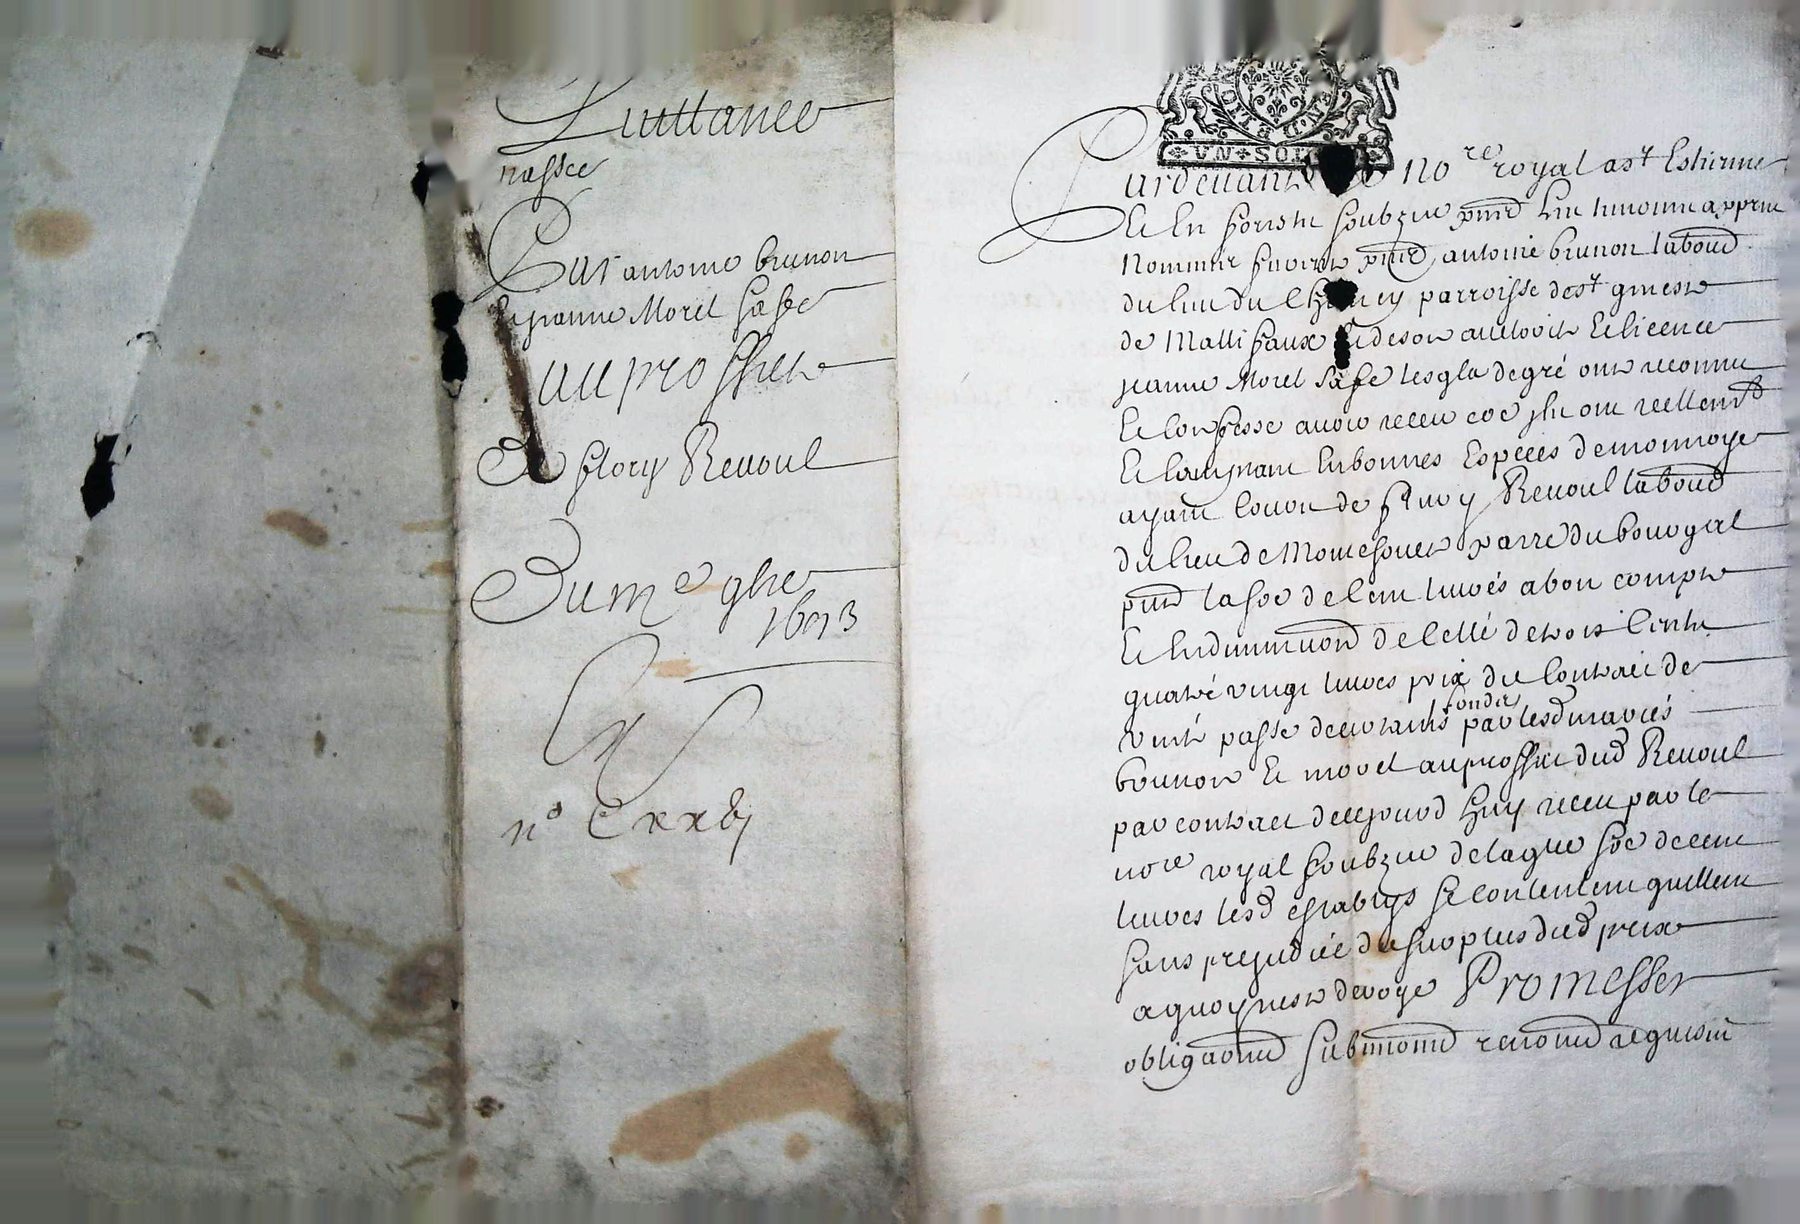 Quittance
passée
Par antoine brunon
Et jeanne Morel sa fe
Au proffict
De flory Revoul
Du me 9bre
1693
no Cxxbj
VN SOL
Pardevant le nore royal a st Estienne
Et en foriste soubzne pntz les tmoins apprez
nommez furent pntz antoine brunon labour
du lieu du Ch cy parroisse de st genest
de Mallifaux & de son authorité & licence
jeanne Morel sa fe lesqlz de gré ont reconnu
Et confessé avoir receu coe ilz ont reellemt
Et comptant en bonnes Especes de monnoye
ayant cours de flory Revoul labour
du lieu de Montchouet parre du bourgal
pnt la soe de cent livres a bon compte
Et en diminuon de celle de trois Cents
quatre vingt livres prix du contract de
vente passé de certains fondz par lesd mariés
brunon Et morel au proffict dud Revoul
par contract de cejourd huy receu par le
nore royal soubzne de laqlle soe de cent
livres lesd establys se contentent quittent
sans prejudice du surplus dud prix
a quoy nest derogé Promesses
obligaons submons renons requisit